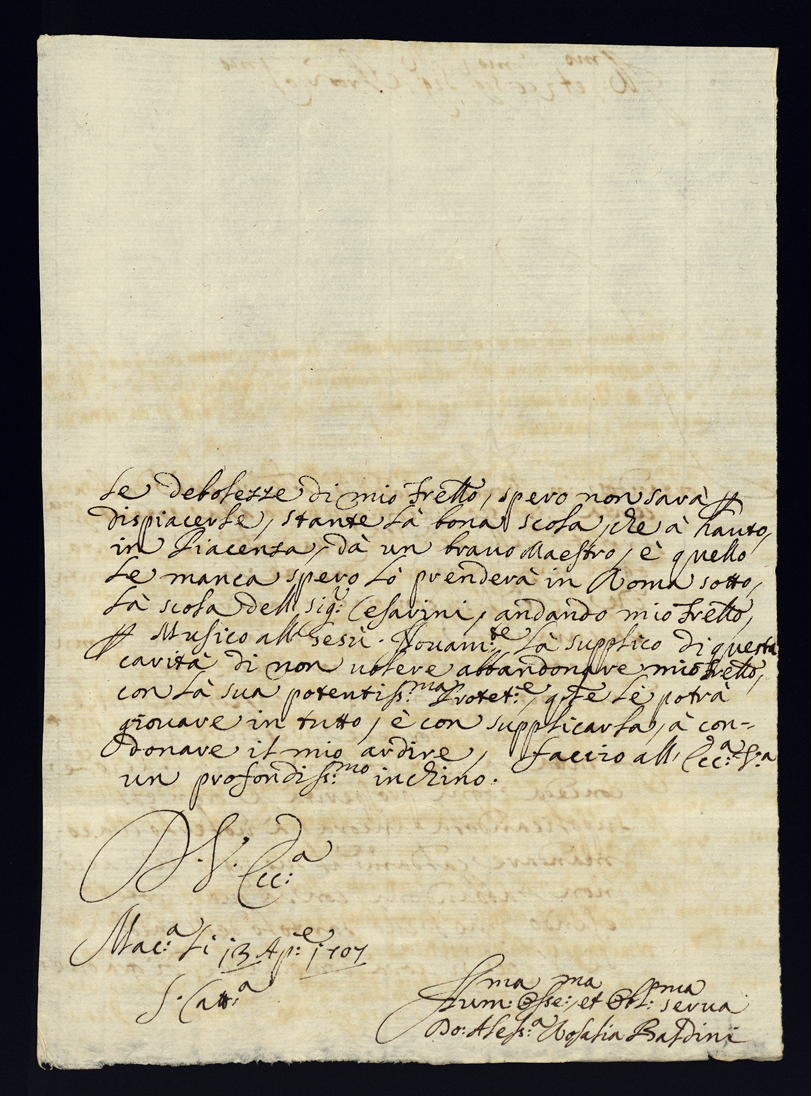 le debolezze di mio fretto, spero non sarà p
dispiacerle, stante là bona scola, che à hauto,
in Piacenza, dà un bravo Maestro, è quello
le manca spero lò prenderà in Roma sotto,
là scola dell Sig.r Cesarini, andando mio fretto,
p Musico all Gesù. Novam.te là supplico di questa
carità di non volere abbandonare mio fretto,
con là sua potentiss.ma Protet.e, q.le le potrà
giovare in tutto, è con supplicarla, à con=
donare il mio ardire, faccio all' Ecc.a V.a
un profondiss.mo inchino.
D. V. Ecc.a
Mac.a Li 13 Ap.e 1707
S. Catt.a
Hum.ma Osse.ma et Obl.ma serva
Do: Aless.a Rosalia Baldini